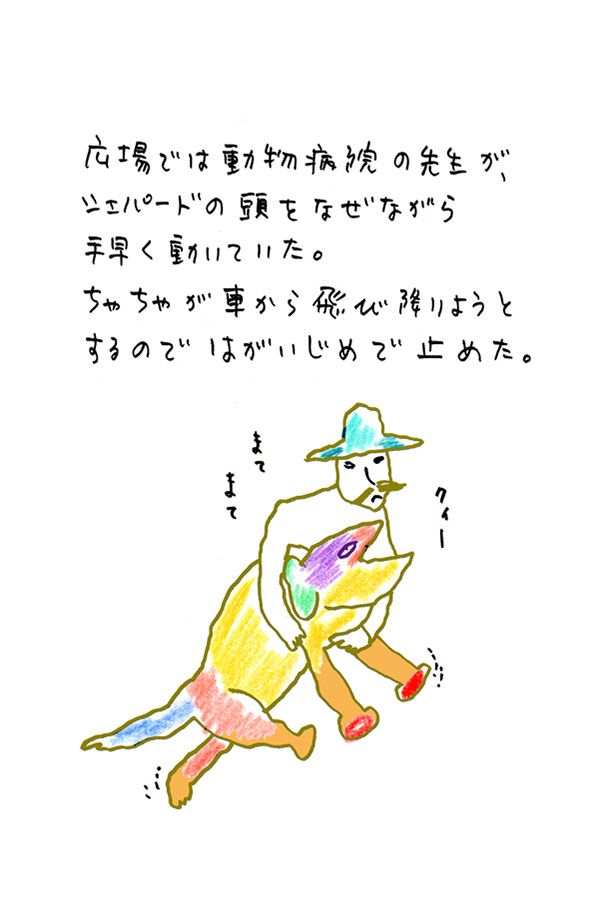 広場では動物病院の先生が、
シェパードの頭をなぜながら
手早く動いていた。
ちゃちゃが車から飛び降りようと
するのではがいじめで止めた。
まて
まて
クィー